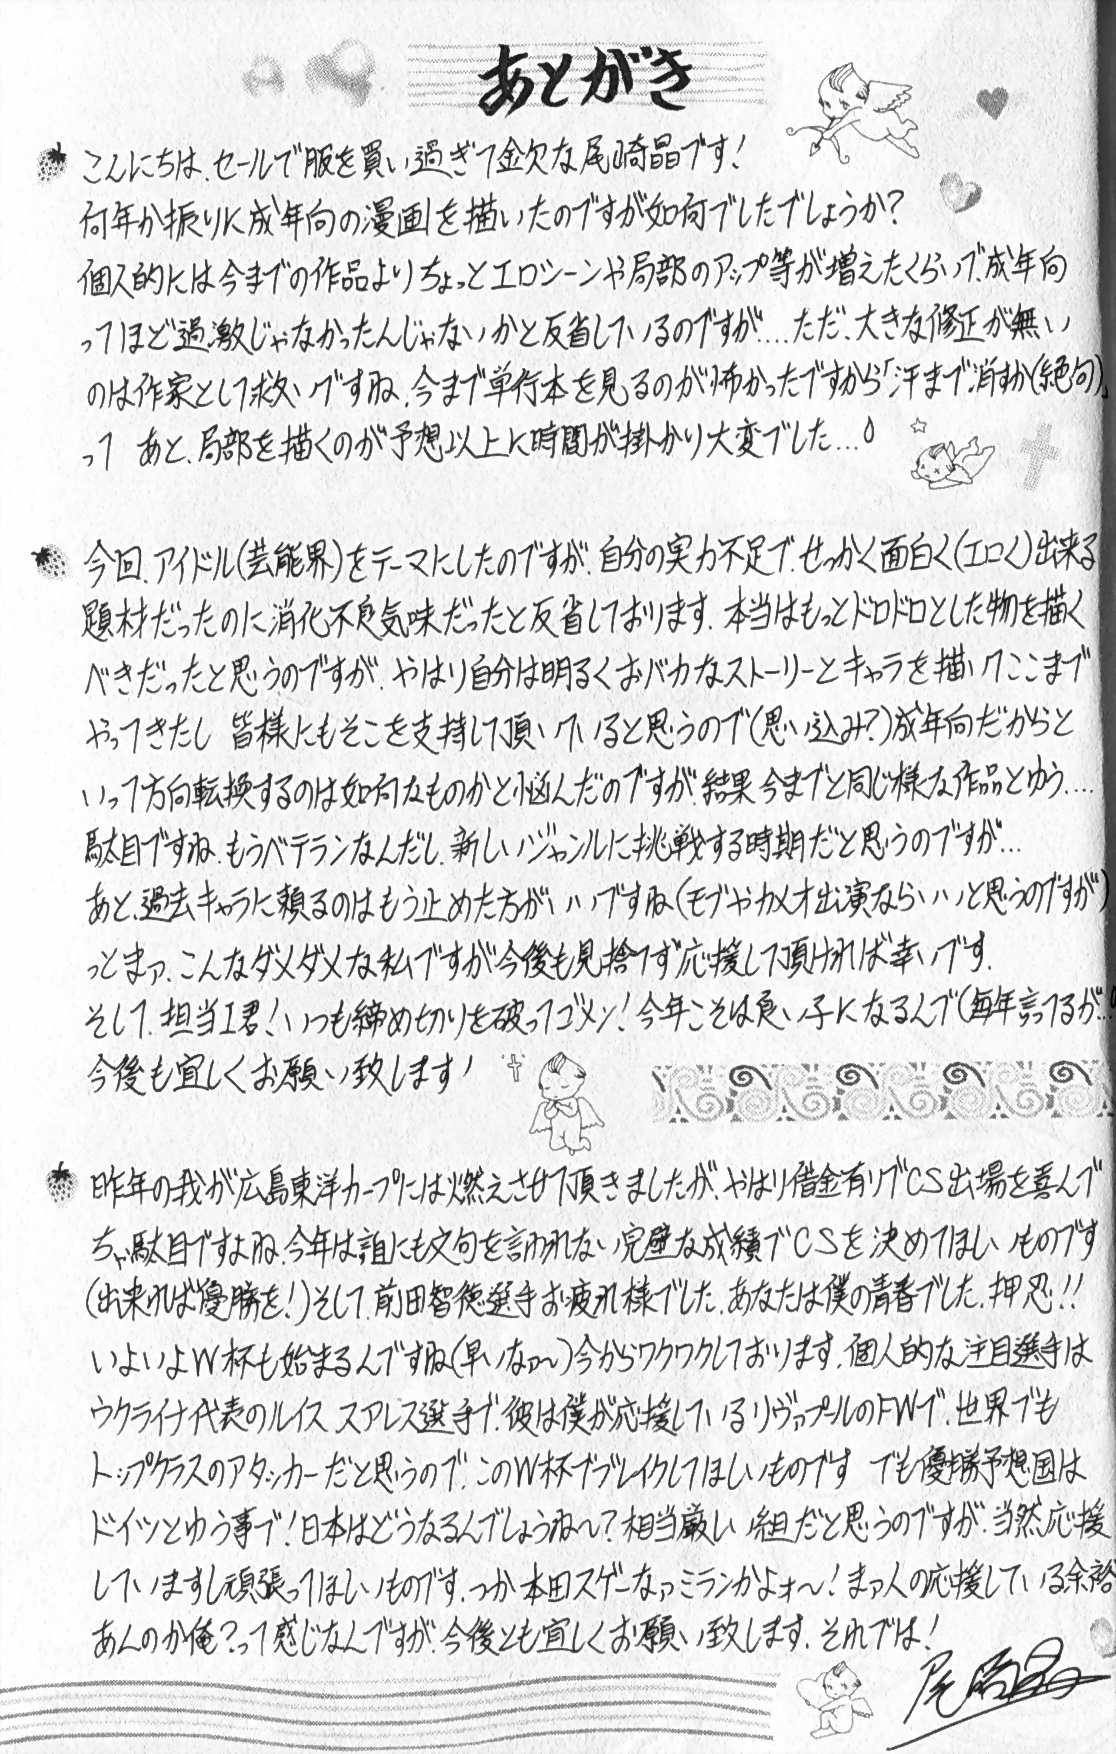 あとがき
こんにちは、セールで服を買い過ぎて金欠な尾崎晶です!
何年か振りに成年向の漫画を描いたのですが如何でしたでしょうか?
個人的には今までの作品よりちょっとエロシーンや局部のアップ等が増えたくらいで、成年向
ってほど過激じゃなかったんじゃないかと反省しているのですが....ただ、大きな修正が無い
のは作家として救いですね、今まで単行本を見るのが怖かったですから「汗まで消すか(絶句)」
って あと、局部を描くのが予想以上に時間が掛かり大変でした...
今回、アイドル(芸能界)をテーマにしたのですが、自分の実力不足で、せっかく面白く(エロく)出来る
題材だったのに消化不良気味だったと反省しております、本当はもっとドロドロとした物を描く
べきだったと思うのですが、やはり自分は明るくおバカなストーリーとキャラを描いてここまで
やってきたし 皆様にもそこを支持して頂いていると思うので(思い込み?)成年向だからと
いって方向転換するのは如何なものかと悩んだのですが、結果今までと同じ様な作品とゆう....
駄目ですね、もうベテランなんだし、新しいジャンルに挑戦する時期だと思うのですが...
あと、過去キャラに頼るのはもう止めた方がいいですね(モブやカメオ出演ならいいと思うのですが)
っとまァ、こんなダメダメな私ですが今後も見捨てず応援して頂ければ幸いです、
そして、担当I君!いつも締め切りを破ってゴメン!今年こそは良い子になるんで(毎年言ってるが..!
今後も宜しくお願い致します!
昨年の我が広島東洋カープには燃えさせて頂きましたが、やはり借金有りでCS出場を喜んで
ちゃ駄目ですよね、今年は誰にも文句を言われない完璧な成績でCSを決めてほしいものです
(出来れば優勝を!)そして、前田智徳選手お疲れ様でした、あなたは僕の青春でした、押忍!!
いよいよW杯も始まるんですね(早いなァ〜)今からワクワクしております、個人的な注目選手は
ウクライナ代表のルイス スアレス選手で、彼は僕が応援しているリヴァプールのFWで、世界でも
トップクラスのアタッカーだと思うので、このW杯でブレイクしてほしいものです でも優勝予想国は
ドイツとゆう事で!日本はどうなるんでしょうね〜?相当厳しい組だと思うのですが、当然応援
していますし頑張ってほしいものです、つか本田スゲーなァミランかよォ〜!まァ人の応援している余裕
あんのか俺?って感じなんですが、今後とも宜しくお願い致します、それでは!
尾崎晶